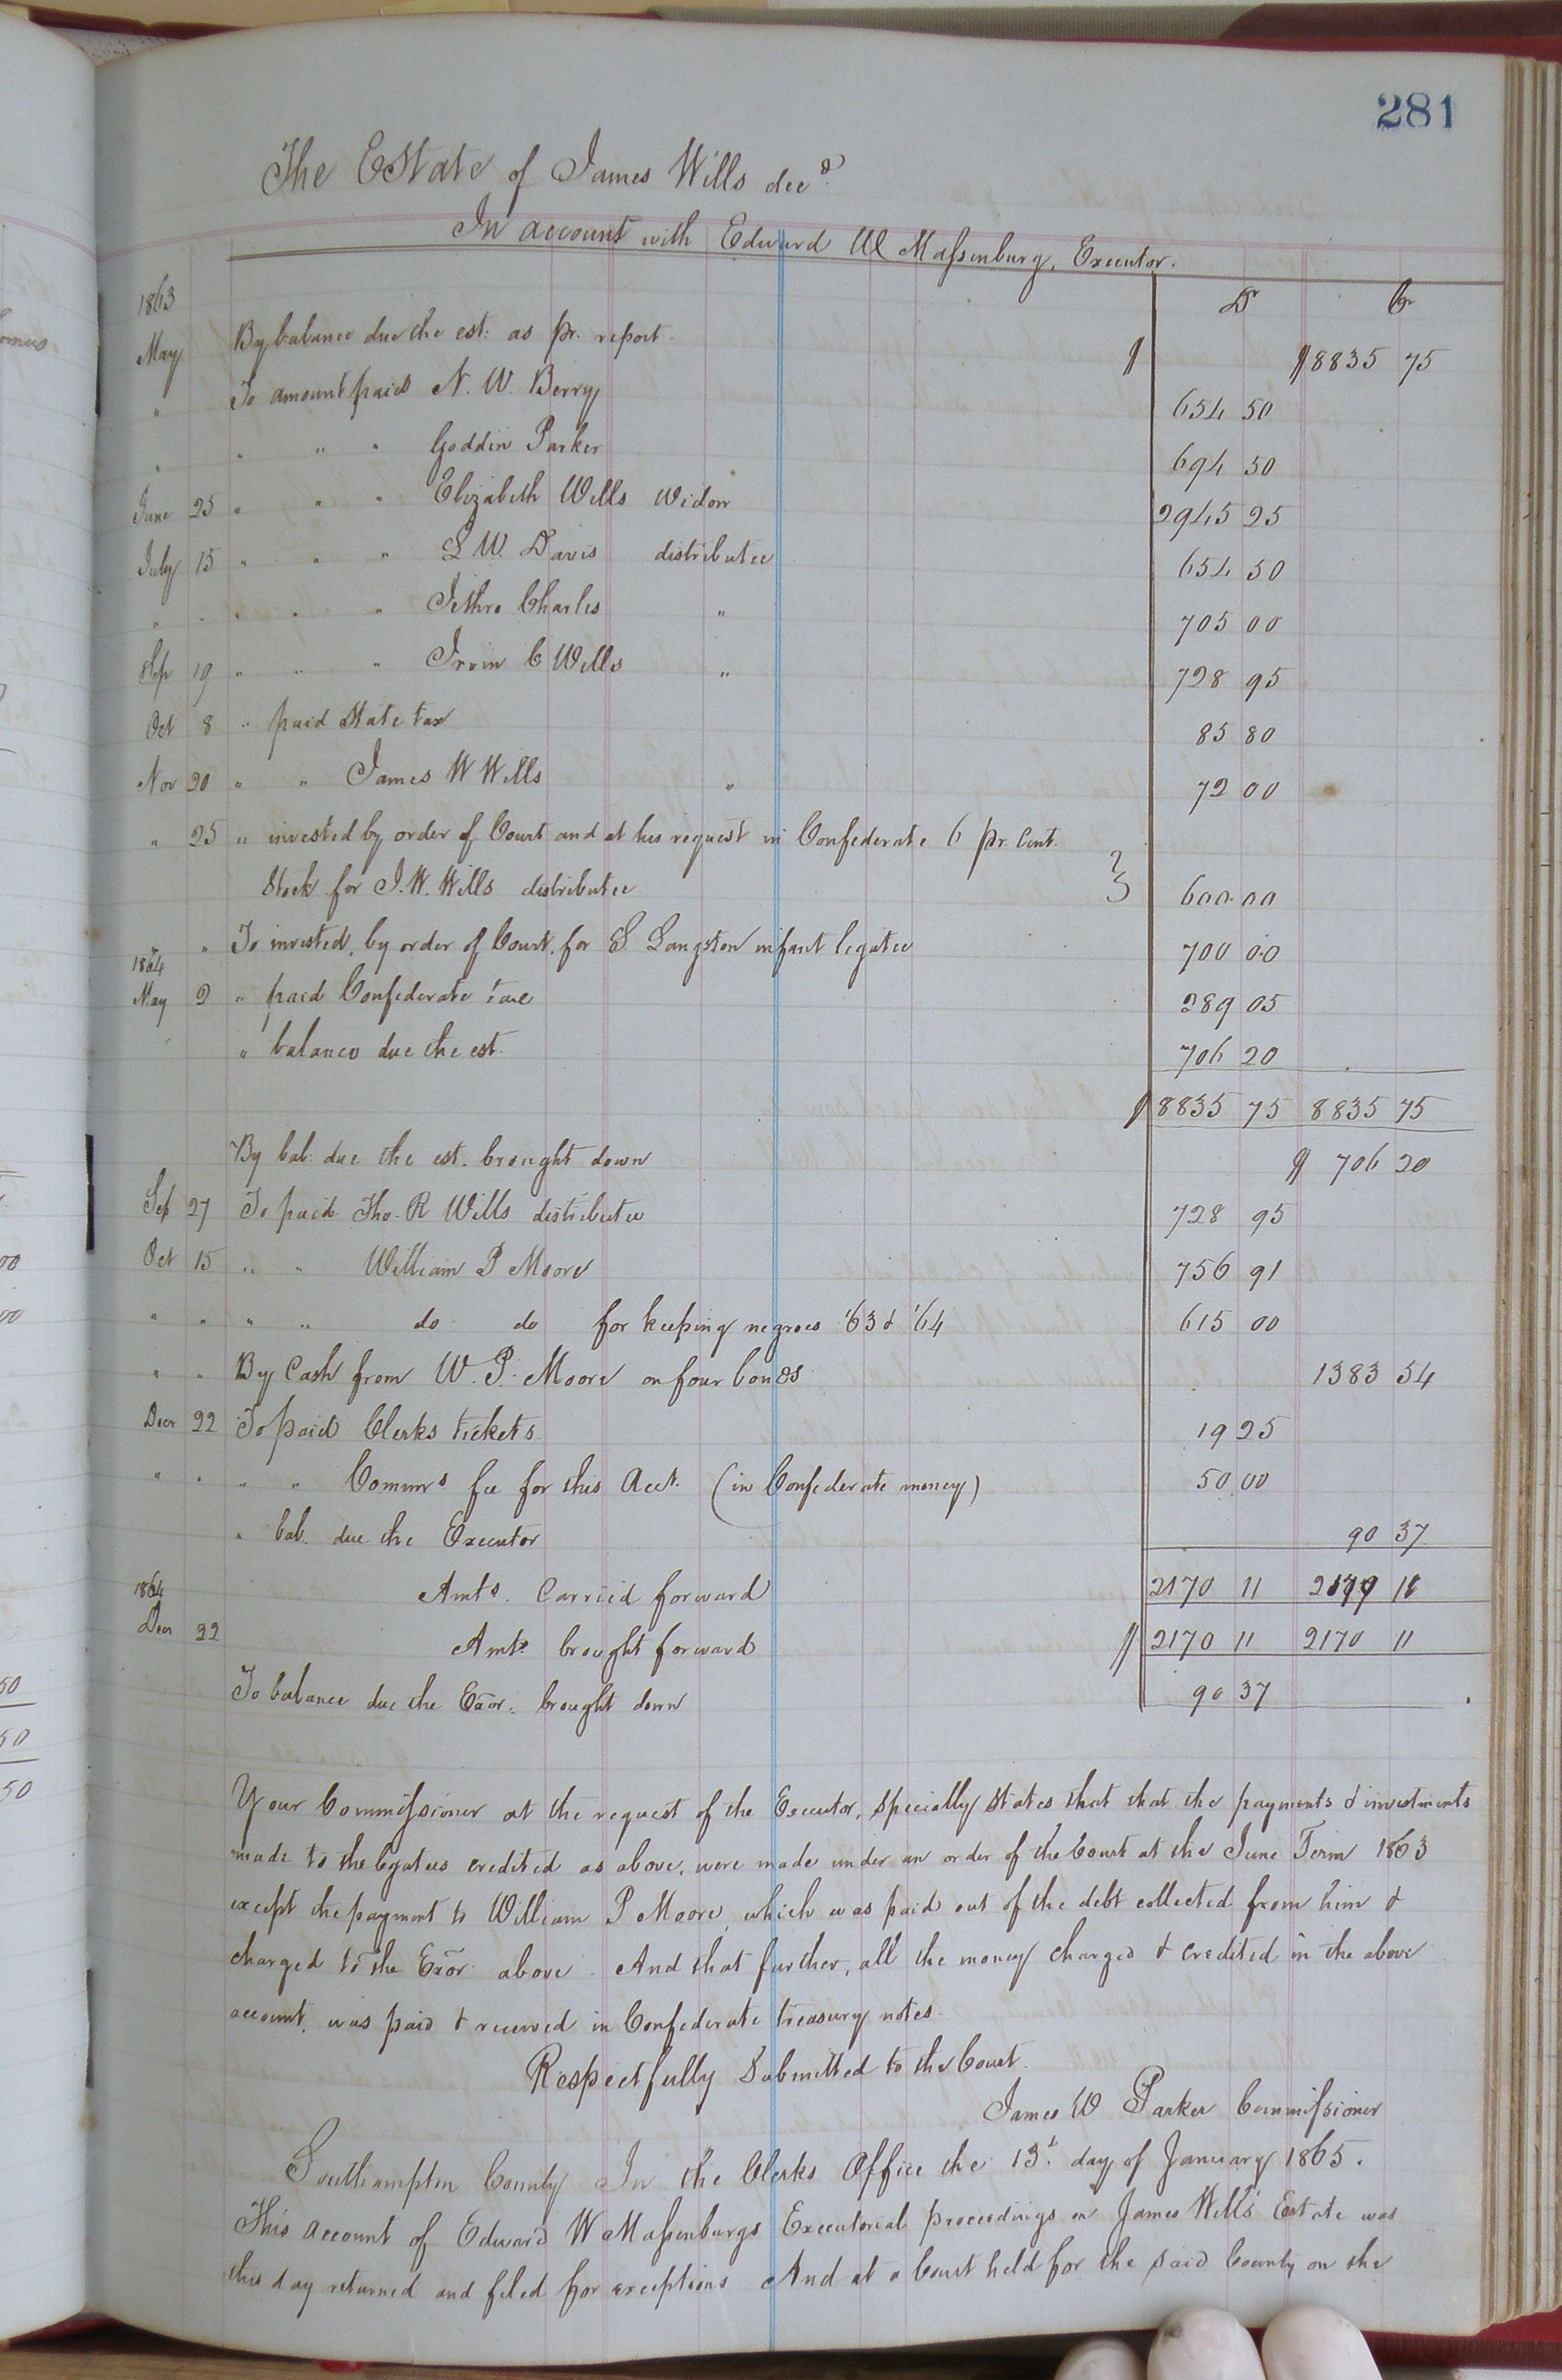 281
The Estate of James Wills decd.
In account with Edward W Massenburg, Executor.
Dr Cr
1863
May By balance due the est. as pr. report $ $8835 75
" To amount paid N. W. Berry 654 50
" " " " Goddin Parker 694 50
June 25 " " " Elizabeth Wills Widow 2945 25
July 15 " " " L W. Davis distributee 654 50
" " " " " Jethro Charles " 705 00
Sep 19 " " " Irvin C Wills " 728 95
Oct 8 " paid State tax 85 80
Nov 20 " " James W Wills " 72 00
" 25 " invested by order of Court and at his request in Confederate 6 pr. Cent
Stock for J. W. Wills distributee 600 00
" To invested, by order of Court, for S. Langston infant legatee 700 00
1864
May 2 " paid Confederate tax 289 05
" balance due the est. 706 20
$8835 75 8835 75
By bal. due the est. brought down $ 706 20
Sep 27 To paid Tho. R Wills distributee 728 95
Oct 15 " " William P Moore 756 91
" " " " do do for keeping negroes '63 & '64 615 00
" " By Cash from W. P. Moore on four bonds 1383 54
Decr 22 To paid Clerks tickets 19 25
" " " " Commrs fee for this Acct. (in Confederate money) 50 00
" bal. due the Executor 90 37
1864 Amts. Carried forward 2170 11 2170 11
Decr 22 Amts. brought forward $2170 11 2170 11
To balance due the Exor. brought down 90 37
Your Commissioner at the request of the Executor, specially states that that the payments & investments
made to the legatees credited as above, were made under an order of the Court at the June Term 1863
except the payment to William P Moore, which was paid out of the debt collected from him &
charged to the Exor above. And that further, all the money charged & credited in the above
account, was paid & received in Confederate treasury notes.
Respectfully Submitted to the Court.
James W Parker Commissioner
Southampton County In the Clerks Office the 13t. day of January 1865.
This account of Edward W Massenburgs Executorial proceedings on James Wills Estate was
this day returned and filed for exceptions And at a Court held for the said County on the